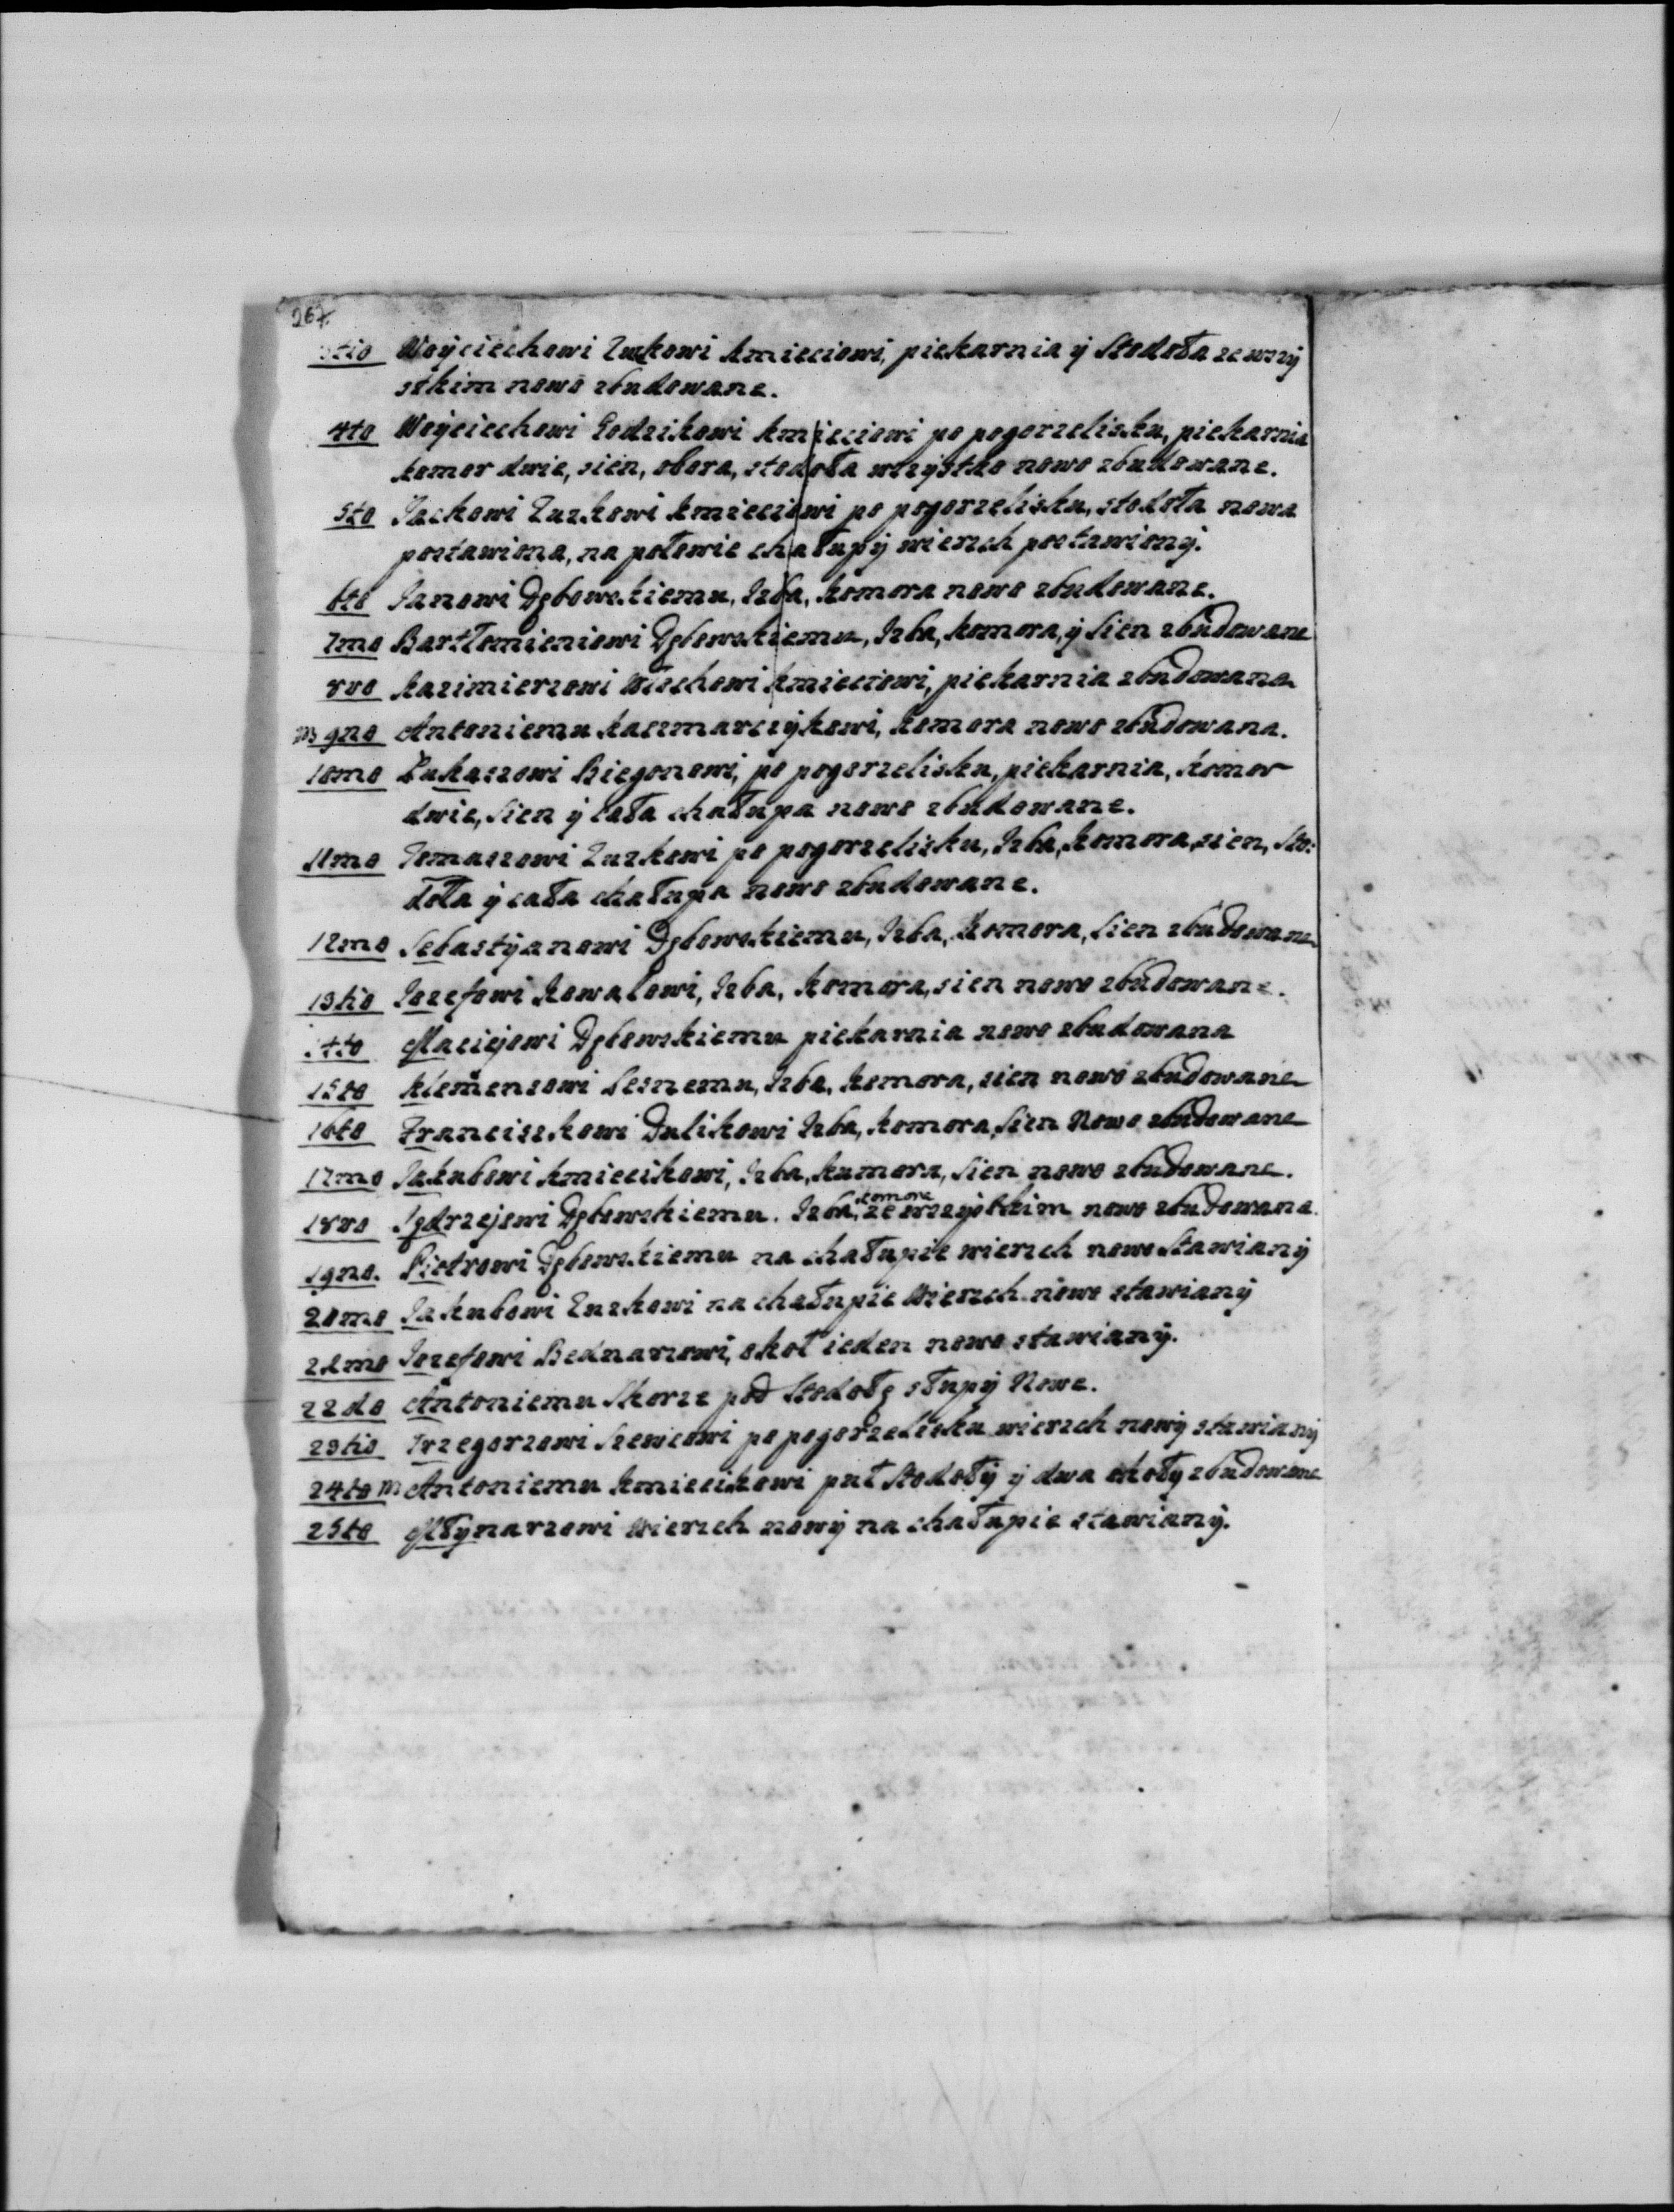 267.
3tio Woyciechowi Zuzkowi kmieciowi, piekarnia ÿ Stodoła ze wszÿ
stkim nowo zbudowane.
4to Woyciechowi Godzikowi kmieciowi po pogorzelisku, piekarnia
komor dwie, sien, obora, stodoła wszÿstko nowo zbudowane.
5to Jackowi Zuzkowi kmieciowi po pogorzelisku, stodoła nowa
postawiona, na połowie chałupÿ wierzch postawionÿ.
6to Janowi Dębowskiemu, Izba, komora nowo zbudowane.
7mo Bartłomieniowi Dębowskiemu, Izba, komora, ÿ Sien zbudowane
8vo kazimierzowi Wlechowi kmieciowi, piekarnia zbudowana
9no Antoniemu kaczmarczÿkowi, komora nowo zbudowana.
10mo Łukaszowi Biegonowi, po pogorzelisku, piekarnia, komor
dwie, Sien ÿ cała chałupa nowo zbudowane.
11mo Tomaszowi Zuzkowi po pogorzelisku, Izba, komora, sien, Sto:
doła ÿ cała chałupa nowo zbudowane.
12mo Sebastÿanowi Dębowskiemu, Izba, komora, Sien zbudowane
13tio Jozefowi kowalowi, Izba, komora, sien nowo zbudowane.
14to Maciejowi Dębowskiemu piekarnia nowo zbudowana
15to klemensowi Lesnemu, Izba, komora, sien nowo zbudowane
16to Franciszkowi Dulikowi Izba, komora, Sien Nowo zbudowane
17mo Jakubowi kmiecikowi, Izba, kumora, Sien nowo zbudowane.
18vo Jędrzejowi Dębowskiemu. Izba, komora ze wszÿstkim nowo zbudowana.
19no. Piotrowi Dębowskiemu na chałupie wierzch nowo Stawianÿ
20mo Jakubowi Zuzkowi na chałupie Wierzch nowo stawianÿ
21mo Jozefowi Bednarzowi, okoł ieden nowo stawianÿ.
22do Antoniemu Skorze pod Stodołę słupÿ Nowe.
23tio Grzegorzowi Szewcowi po pogorzelisku wierzch nowÿ stawianÿ
24to Antoniemu kmiecikowi puł Stodołÿ ÿ dwa okołÿ zbudowane
25to Młÿnarzowi Wierzch nowÿ na chałupie stawianÿ.